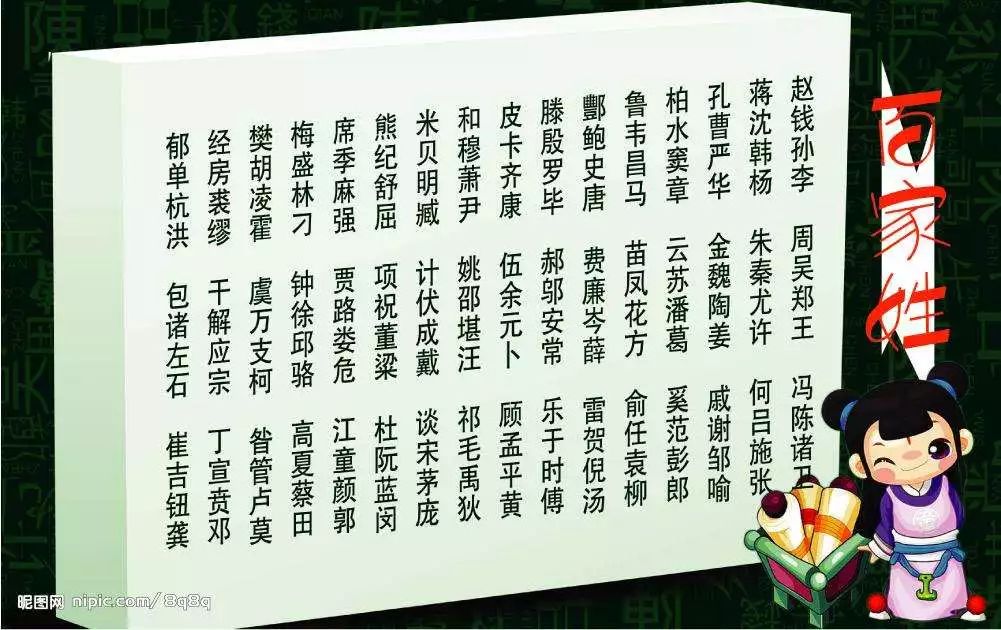 百家姓
赵钱孙李 周吴郑王 冯陈诸卫
蒋沈韩杨 朱秦尤许 何吕施张
孔曹严华 金魏陶姜 戚谢邹喻
柏水窦章 云苏潘葛 奚范彭郎
鲁韦昌马 苗凤花方 俞任袁柳
酆鲍史唐 费廉岑薛 雷贺倪汤
滕殷罗毕 郝邬安常 乐于时傅
皮卡齐康 伍余元卜 顾孟平黄
和穆萧尹 姚邵堪汪 祁毛禹狄
米贝明臧 计伏成戴 谈宋茅庞
熊纪舒屈 项祝董粱 杜阮蓝闵
席季麻强 贾路娄危 江童颜郭
梅盛林刁 钟徐邱骆 高夏蔡田
樊胡凌霍 虞万支柯 昝管卢莫
经房裘缪 干解应宗 丁宣贲邓
郁单杭洪 包诸左石 崔吉钮龚
昵图网 nipic.com/8q8q